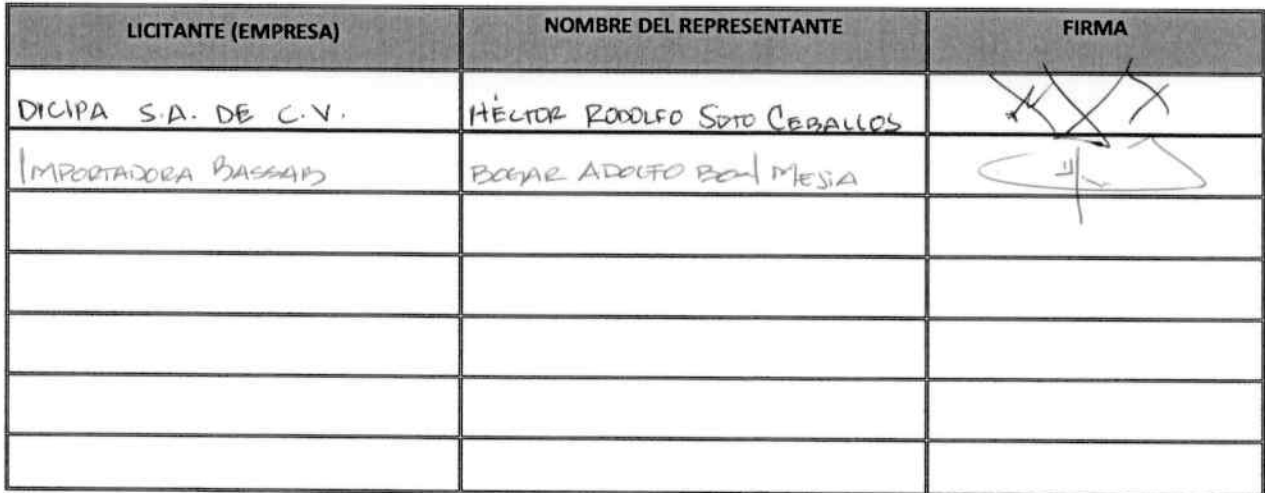 LICITANTE (EMPRESA) NOMBRE DEL REPRESENTANTE FIRMA
DICIPA S.A. DE C.V. HÉCTOR RODOLFO SOTO CEBALLOS
IMPORTADORA ADOLFO MEJIA